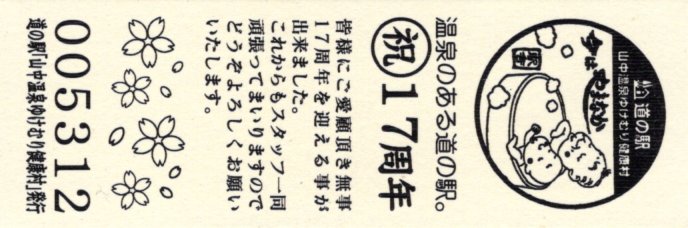 道の駅
山中温泉ゆけむり健康村
今は
やまなか
温泉のある道の駅。
祝17周年
皆様にご愛顧頂き無事
17周年を迎える事が
出来ました。
これからもスタッフ一同
頑張ってまいりますので
どうぞよろしくお願い
いたします。
005312
道の駅「山中温泉ゆけむり健康村」発行